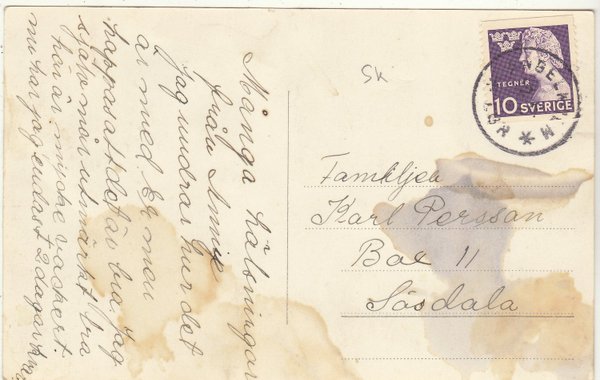 Många hälsningar
från Annie
Jag undrar hur det
är med Er mon
hoppas att det är bra, jag
själv mår utmärkt bra
här är mycke vackert.
nu har jag endast 2 dagar kvar
SK
TEGNÉR
10 SVERIGE
ÄNGELHOLM
Familjen
Karl Persson
Box 11
Sösdala